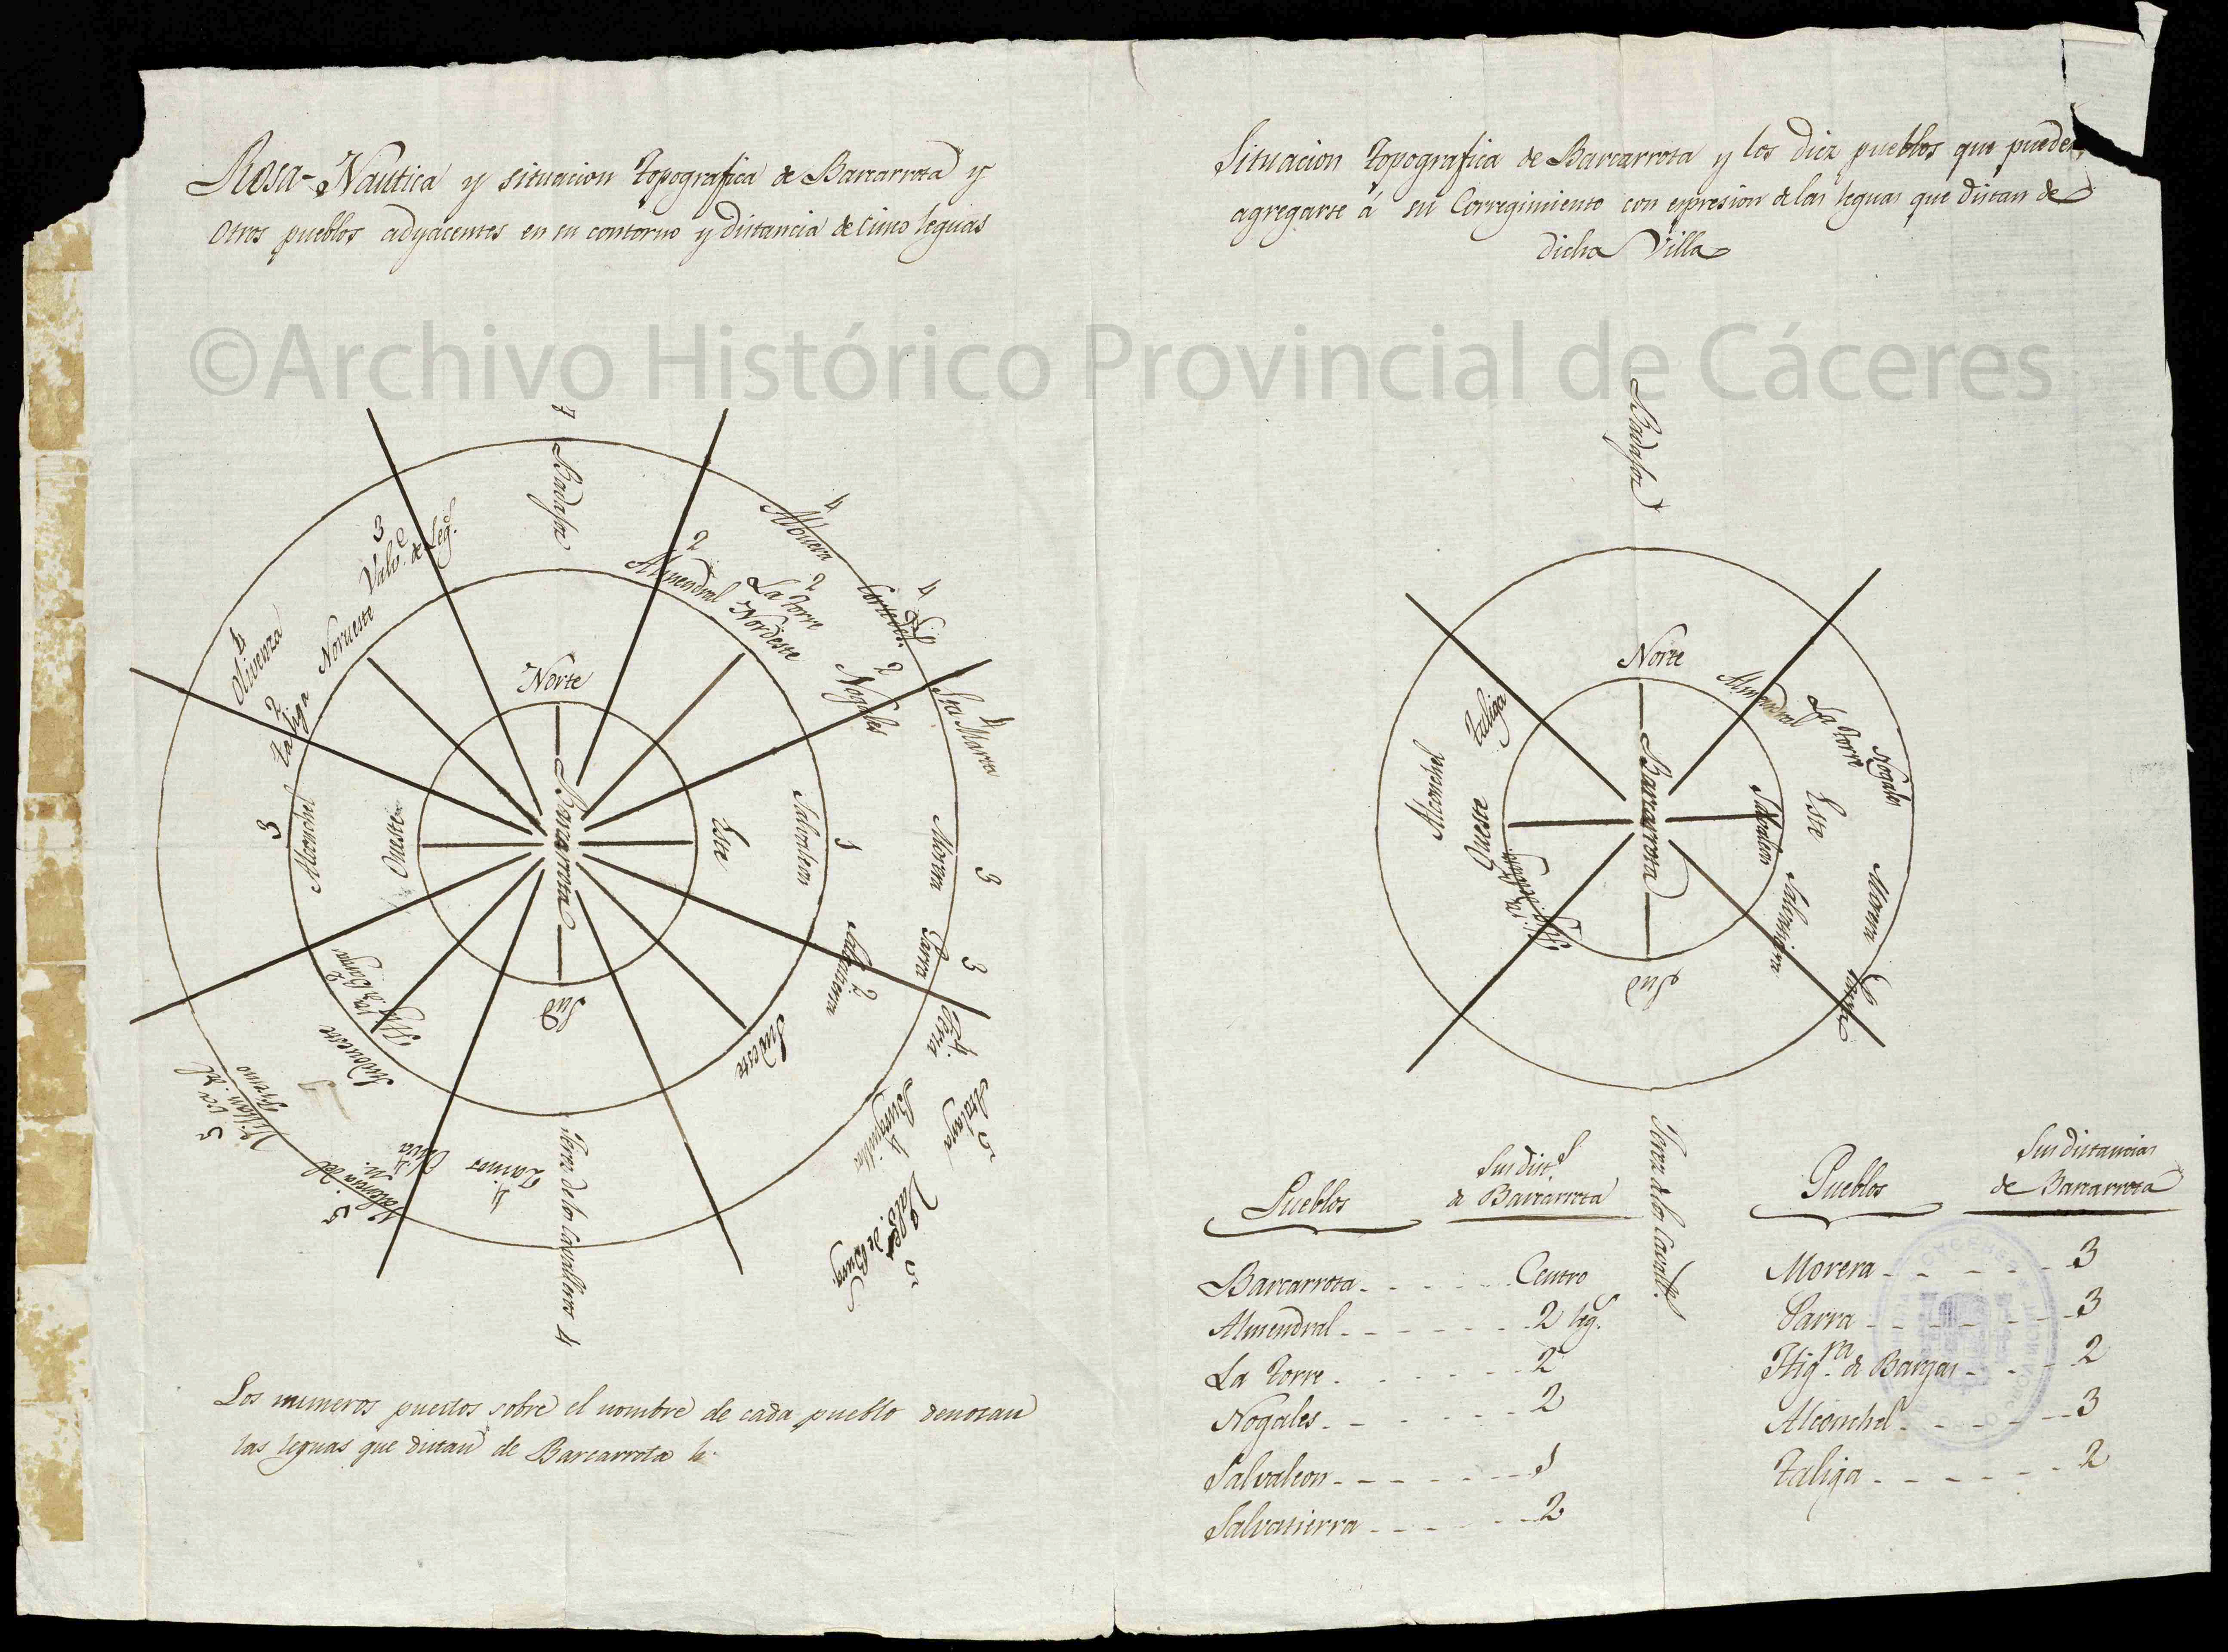 Rosa-Nautica y situacion topografica de Barcarrota y
Otros pueblos adyacentes en su contorno y distancia de cinco leguas
©Archivo Histórico Provincial de Cáceres
7
Badajoz
3
Valv.e de Leg.s
4
Albuera
2
Almendral
2
La torre
Nordeste
4
Corte de
Pel
2
Nogales
4
Sta Marta
4
Olivenza
2
taliga
Noruesto
Norte
Barcarrota
Oueste
Este
Sud
3
Alconchel
1
Salvaleon
3
Morera
3
Parra
2
Salvatierra
Sudeste
4
Feria
5
Atalaya
4
Burguillos
5
Valverde
de Burg.
2
Hig.ra de Bargas
Sudoueste
5
Villan.va del
Fresno
5
Valencia del
4
Oliva
4
Zainos
Xerez de los Cavalleros 4
Los numeros puestos sobre el nombre de cada pueblo denotan
las leguas que distan de Barcarrota
Situacion topografica de Barcarrota y los diez pueblos que pueden
agregarse á su Corregimiento con expresion de las leguas que distan de
dicha Villa
Badajoz
Norte
Almendral
La torre
Nogales
taliga
Alconchel
Oueste
Hig.ra de Bargas
Barcarrota
Este
Salvaleon
Salvatierra
Morera
Parra
Sud
Xerez de los Cavall.s
Pueblos
Sus dist.s
de Barcarrota
Barcarrota - - - - - Centro
Almendral - - - - - - 2 leg.s
La torre - - - - - - 2
Nogales - - - - - - 2
Salvaleon - - - - - - 1
Salvatierra - - - - - - 2
Pueblos
Sus distancias
de Barcarrota
Morera - - - - - - 3
Parra - - - - - - 3
Hig.ra de Bargas - - - 2
Alconchel - - - - - 3
Taliga - - - - - - 2